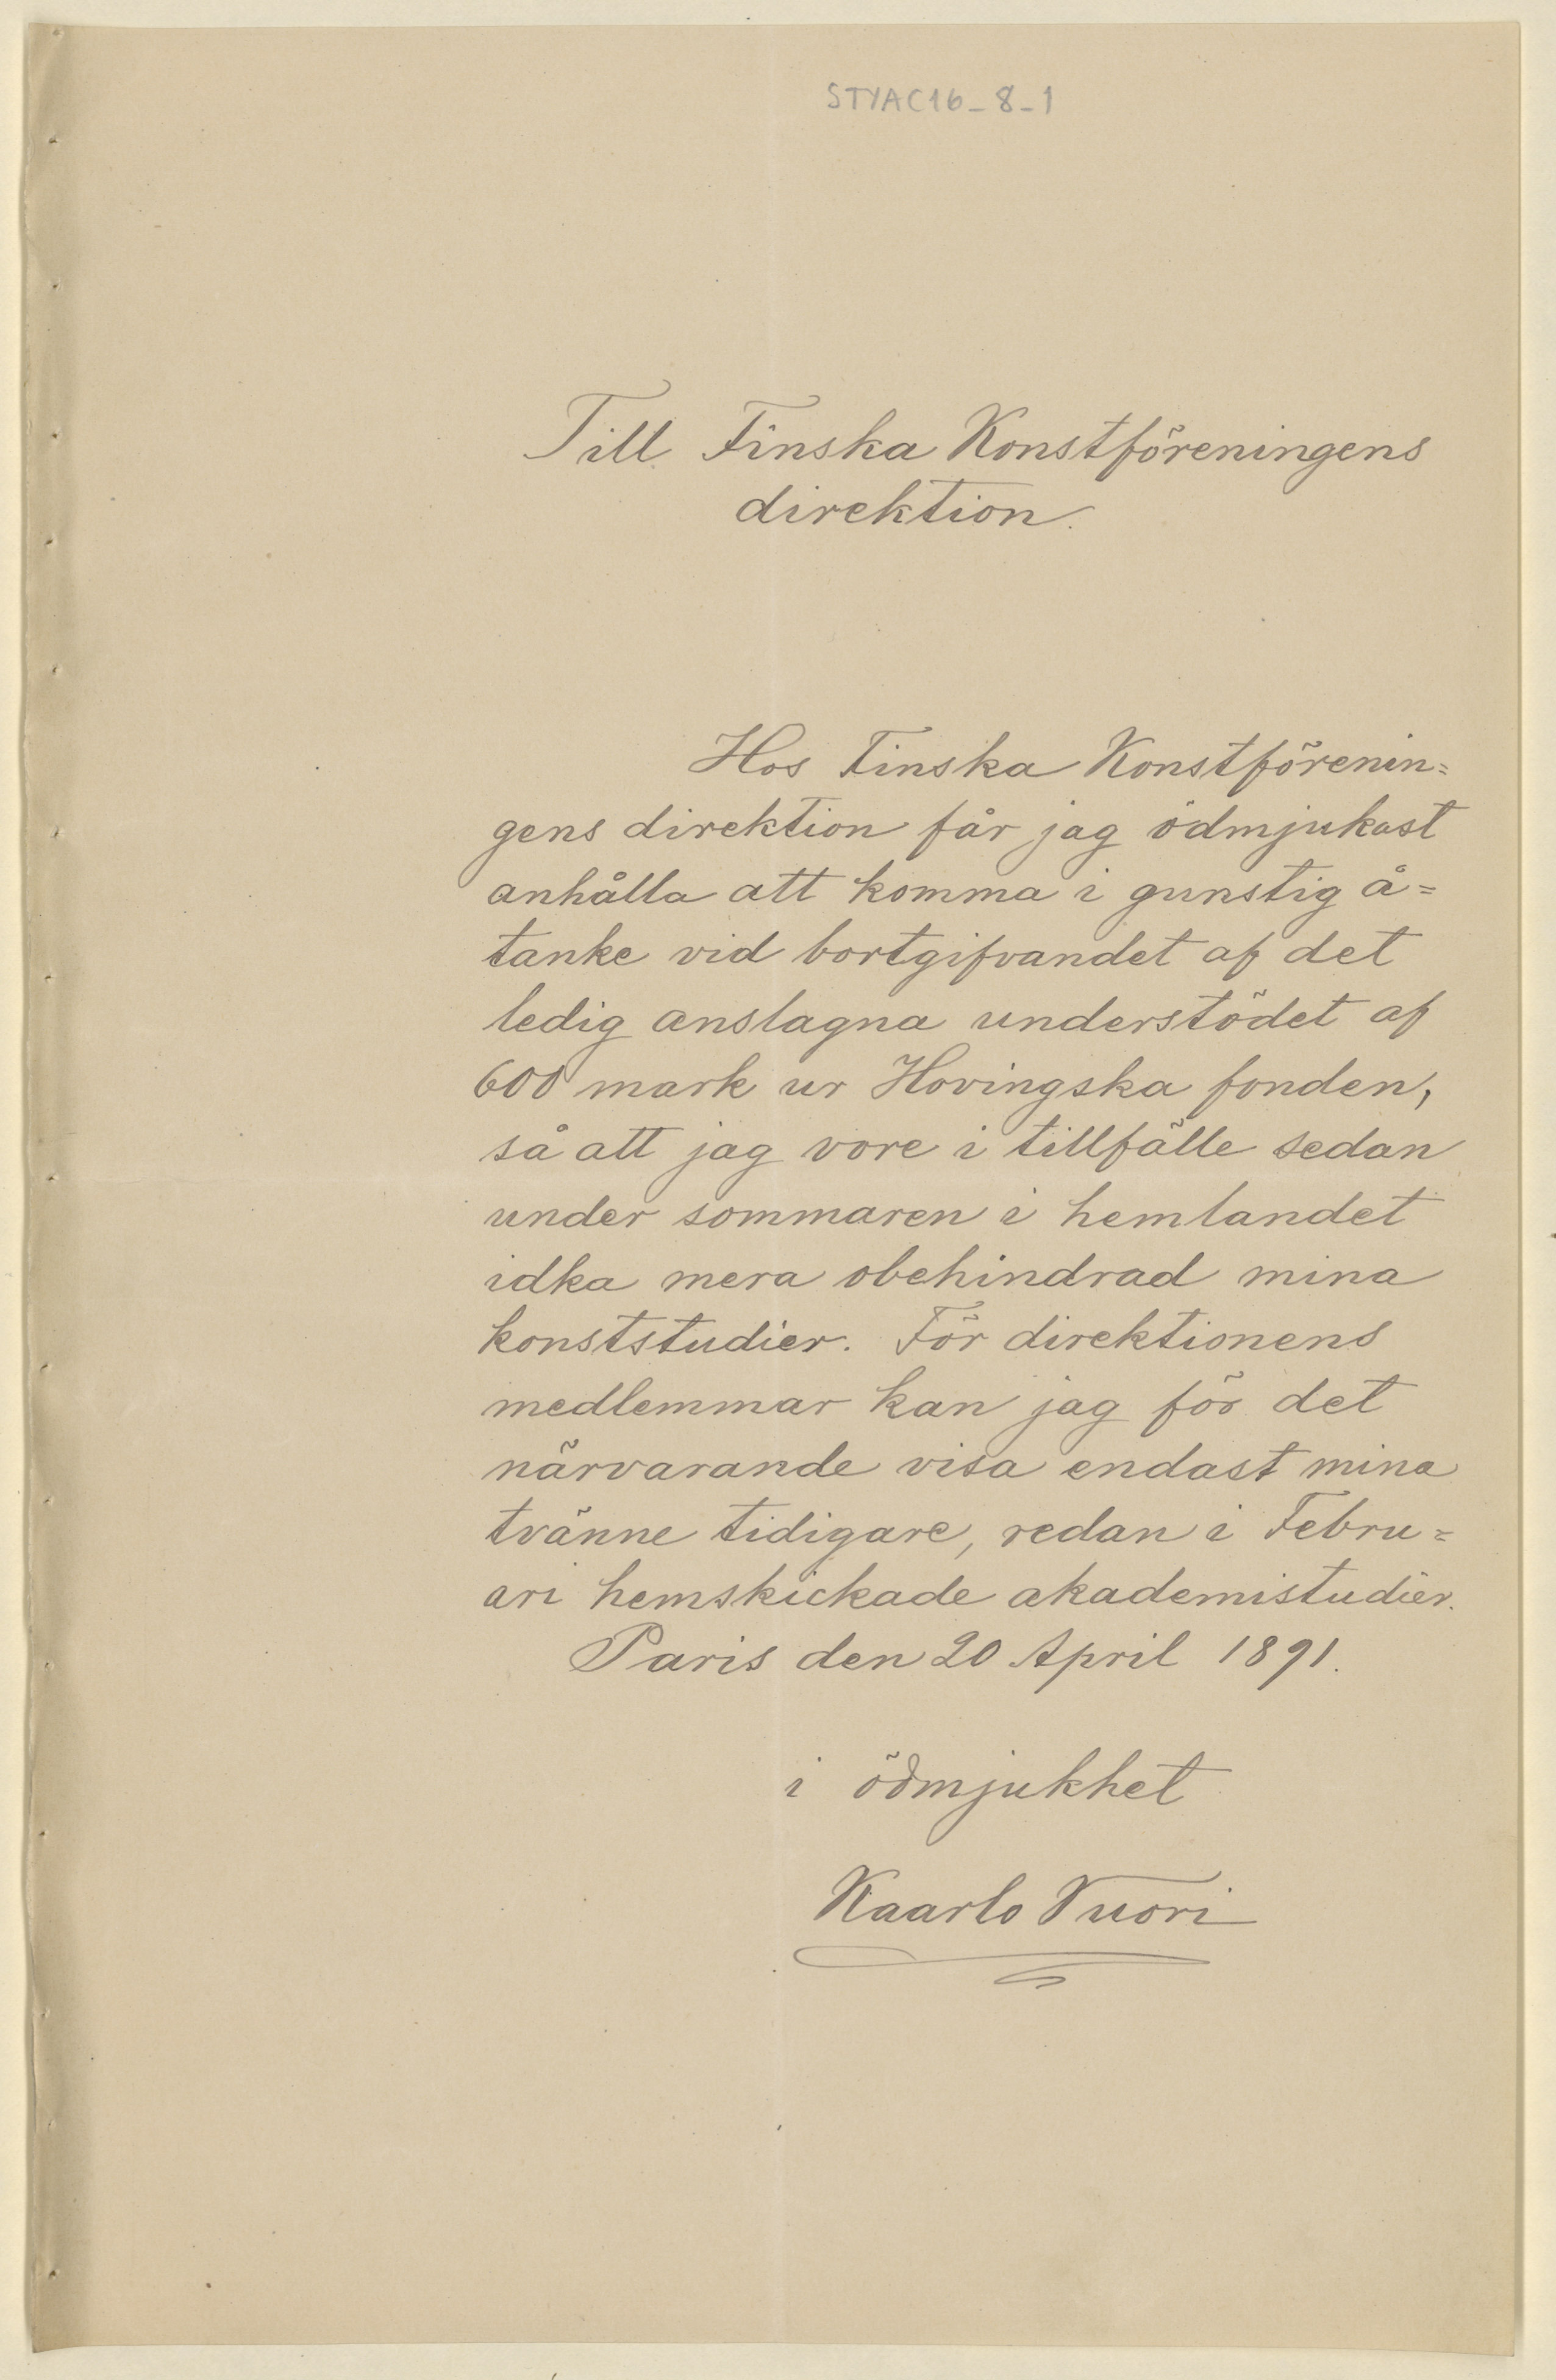 STYAC16_8_1
Till Finska Konstföreningens
direktion.
Hos Finska Konstförenin=
gens direktion får jag ödmjukast
anhålla att komma i gunstig å=
tanke vid bortgifvandet af det
ledig anslagna understödet af
600 mark ur Hovingska fonden,
så att jag vore i tillfälle sedan
under sommaren i hemlandet
idka mera obehindrad mina
konststudier. För direktionens
medlemmar kan jag för det
närvarande visa endast mina
tvänne tidigare, redan i Febru=
ari hemskickade akademistudier.
Paris den 20 April 1891.
i ödmjukhet
Kaarlo Vuori